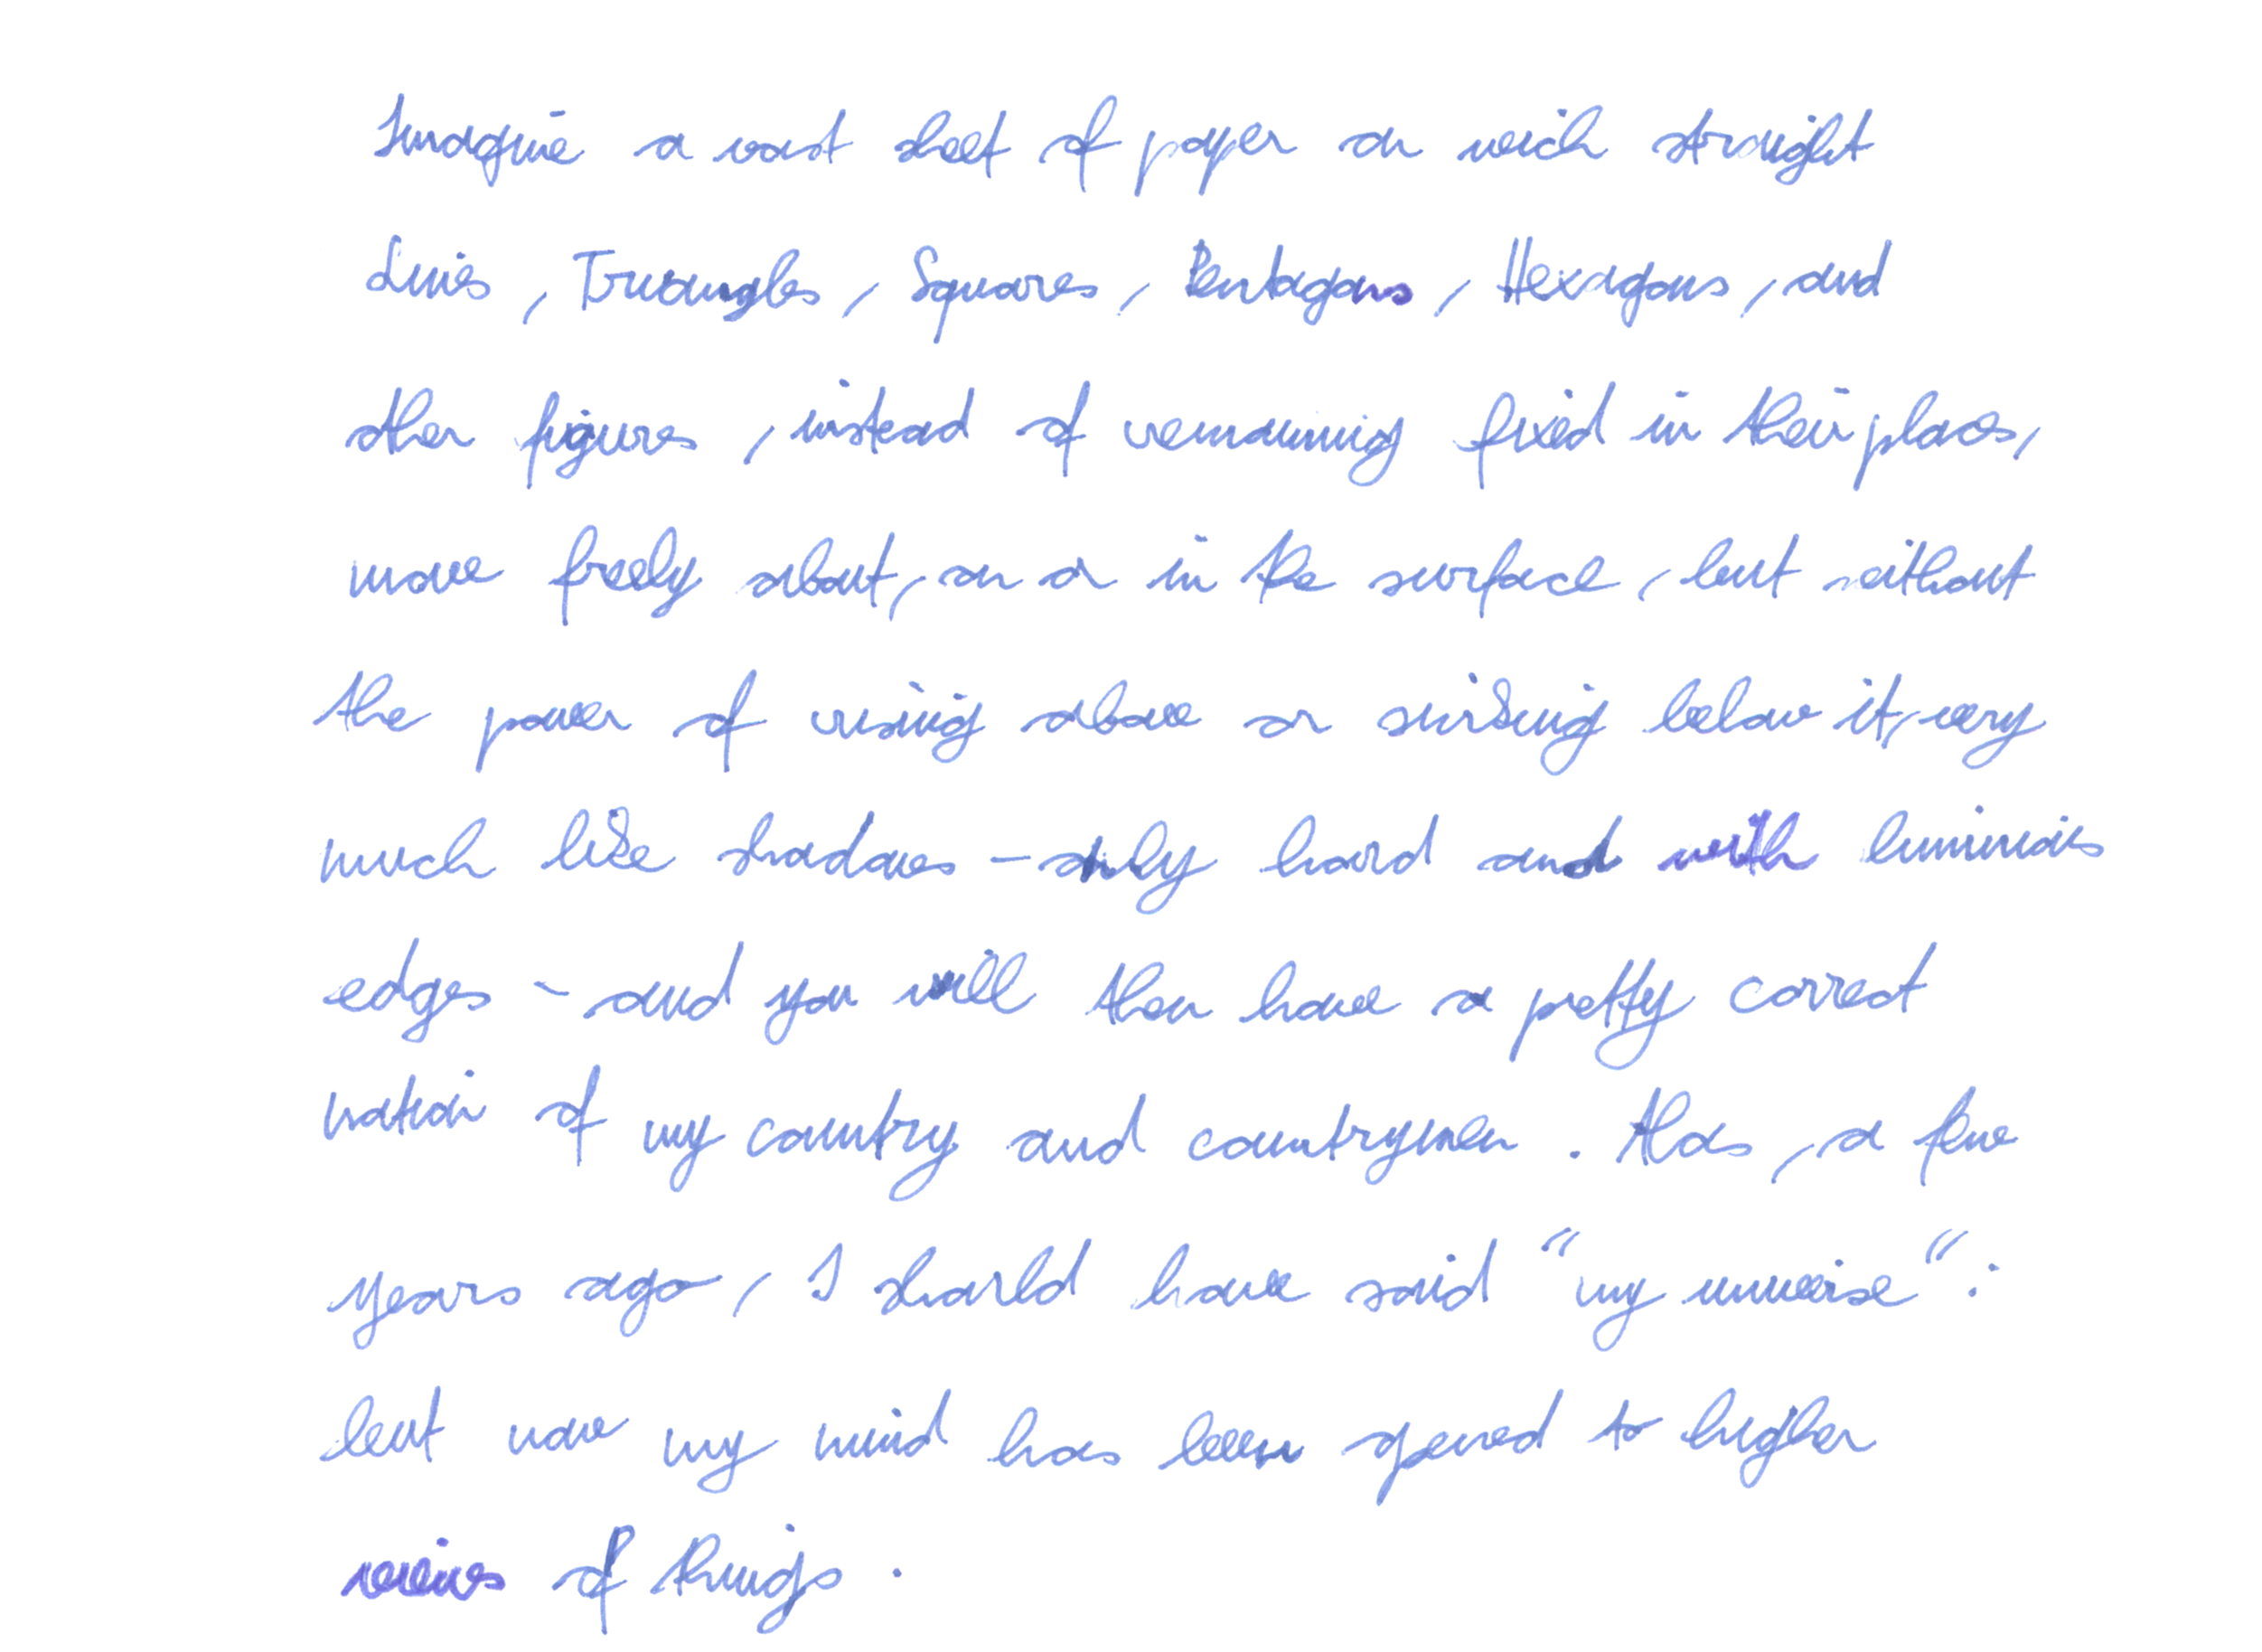 Imagine a vast sheet of paper on wich straight
Lines, Triangles, Squares, Pentagons, Hexagons, and
other figures, instead of remaining fixed in their places,
move freely about, on or in the surface, but without
the power of rising above or sinking below it, very
much like shadows - only hard and with luminous
edges - and you will then have a pretty correct
notion of my country and countrymen. Alas, a few
years ago, I should have said "my universe":
but now my mind has been opened to higher
views of things.